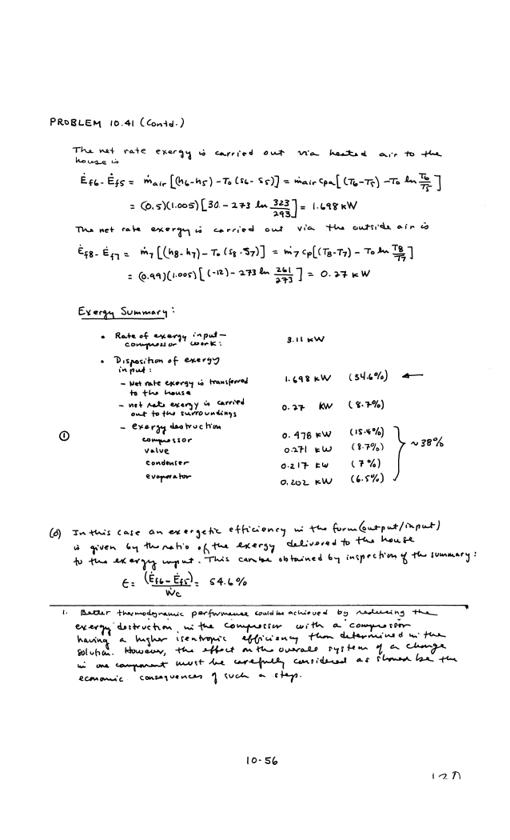 PROBLEM 10.41 (Contd.)
The net rate exergy is carried out via heated air to the
house is
Ėf6 - Ėf5 = ṁair [(h6-h5) - T0 (s6 - s5)] = ṁair cpa [(T6-T5) - T0 ln T6/T5]
= (0.5)(1.005) [30 - 273 ln 323/293] = 1.698 kW
The net rate exergy is carried out via the outside air is
Ėf8 - Ėf7 = ṁ7 [(h8-h7) - T0 (s8-s7)] = ṁ7 cp [(T8-T7) - T0 ln T8/T7]
= (0.99)(1.005) [(-12) - 273 ln 261/273] = 0.27 kW
Exergy Summary:
• Rate of exergy input— compressor work: 3.11 kW
• Disposition of exergy
input:
- Net rate exergy is transferred 1.698 kW (54.6%) ←
to the house
- net rate exergy is carried 0.27 kW (8.7%)
out to the surroundings
- exergy destruction
① compressor 0.478 kW (15.4%)
valve 0.271 kW (8.7%) } ~38%
condenser 0.217 kW (7%)
evaporator 0.202 kW (6.5%)
(d) In this case an exergetic efficiency in the form (output/input)
is given by the ratio of the exergy delivered to the house
to the exergy input. This can be obtained by inspection of the summary:
ε = (Ėf6 - Ėf5)/Ẇc = 54.6%
1. Better thermodynamic performance could be achieved by reducing the
exergy destruction in the compressor with a compressor
having a higher isentropic efficiency than determined in the
solution. However, the effect on the overall system of a change
in one component must be carefully considered as should be the
economic consequences of such a step.
10-56